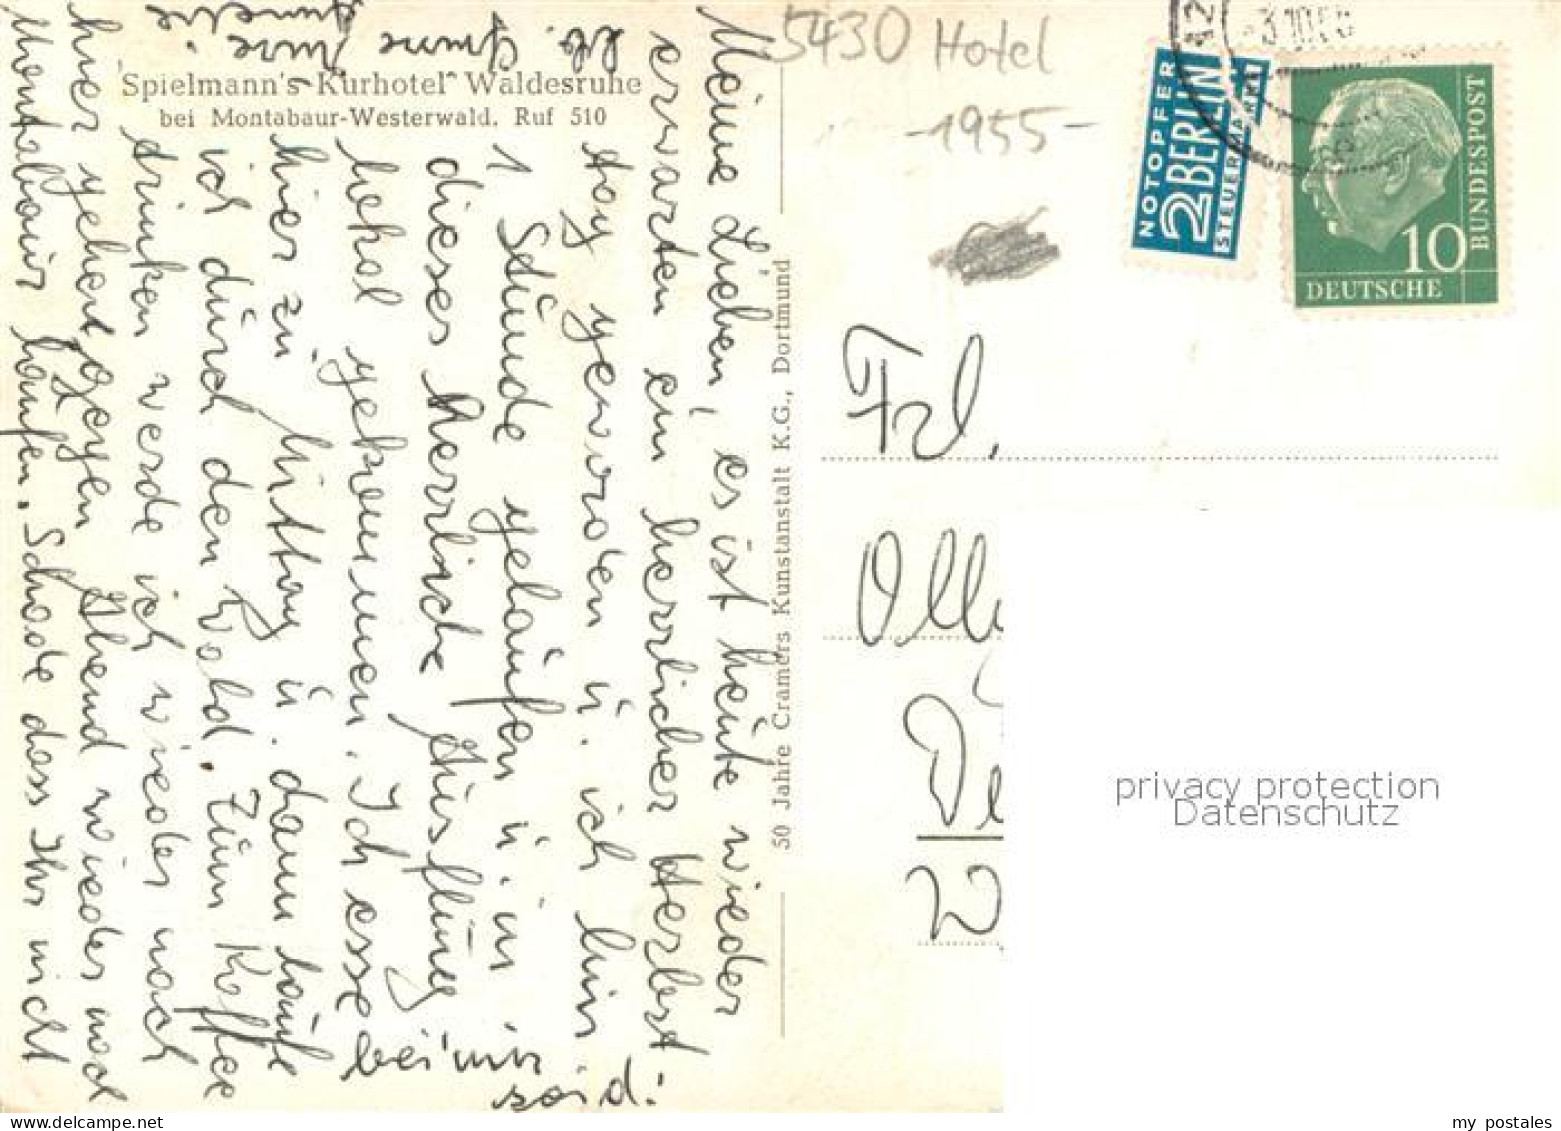 "Spielmann's Kurhotel" Waldesruhe
bei Montabaur-Westerwald. Ruf 510
Meine Lieben, es ist heute wieder
erwarten ein herrlicher Herbst
tag geworden u. ich bin
1 Stunde gelaufen u. in
dieses herrliche Ausflüng
lokal gekommen. Ich esse
hier zu Mittag u. dann laufe
ich durch den Wald. Zum Kaffee
trinken werde ich wieder nach
hier gehen gegen Abend wieder nach
Montabaur laufen. Schade dass Ihr nicht
bei mir
seid.
Lb. Grüsse Eure
50 Jahre Cramers Kunstanstalt K.G., Dortmund
5430 Hotel
-1955-
NOTOPFER
2 BERLIN
STEUERMARKE
3.10.55
10
DEUTSCHE
BUNDESPOST
Frl.
privacy protection
Datenschutz
my postales